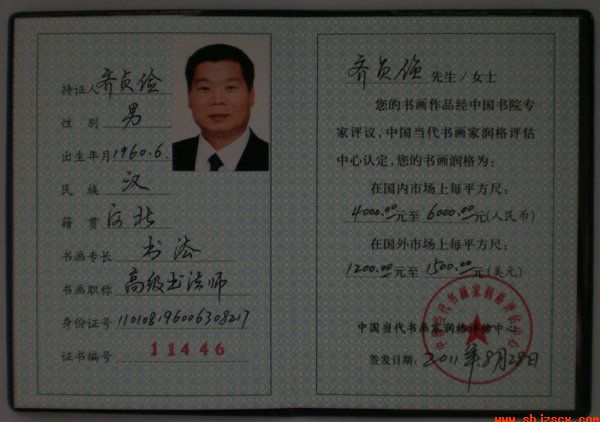 持证人 齐贞俭
性 别 男
出生年月 1960.6.
民 族 汉
籍 贯 河北
书画专长 书法
书画职称 高级书法师
身份证号 110108196006308217
证书编号 11446
齐贞强 先生/女士
您的书画作品经中国书院专
家评议,中国当代书画家润格评估
中心认定,您的书画润格为:
在国内市场上每平方尺:
4000.00元至 6000.00元(人民币)
在国外市场上每平方尺:
1200.00元至 1500.00元(美元)
中国当代书画家润格评估中心
中国当代书画家润格评估中心
签发日期: 2011年8月28日
www.shjzscx.com